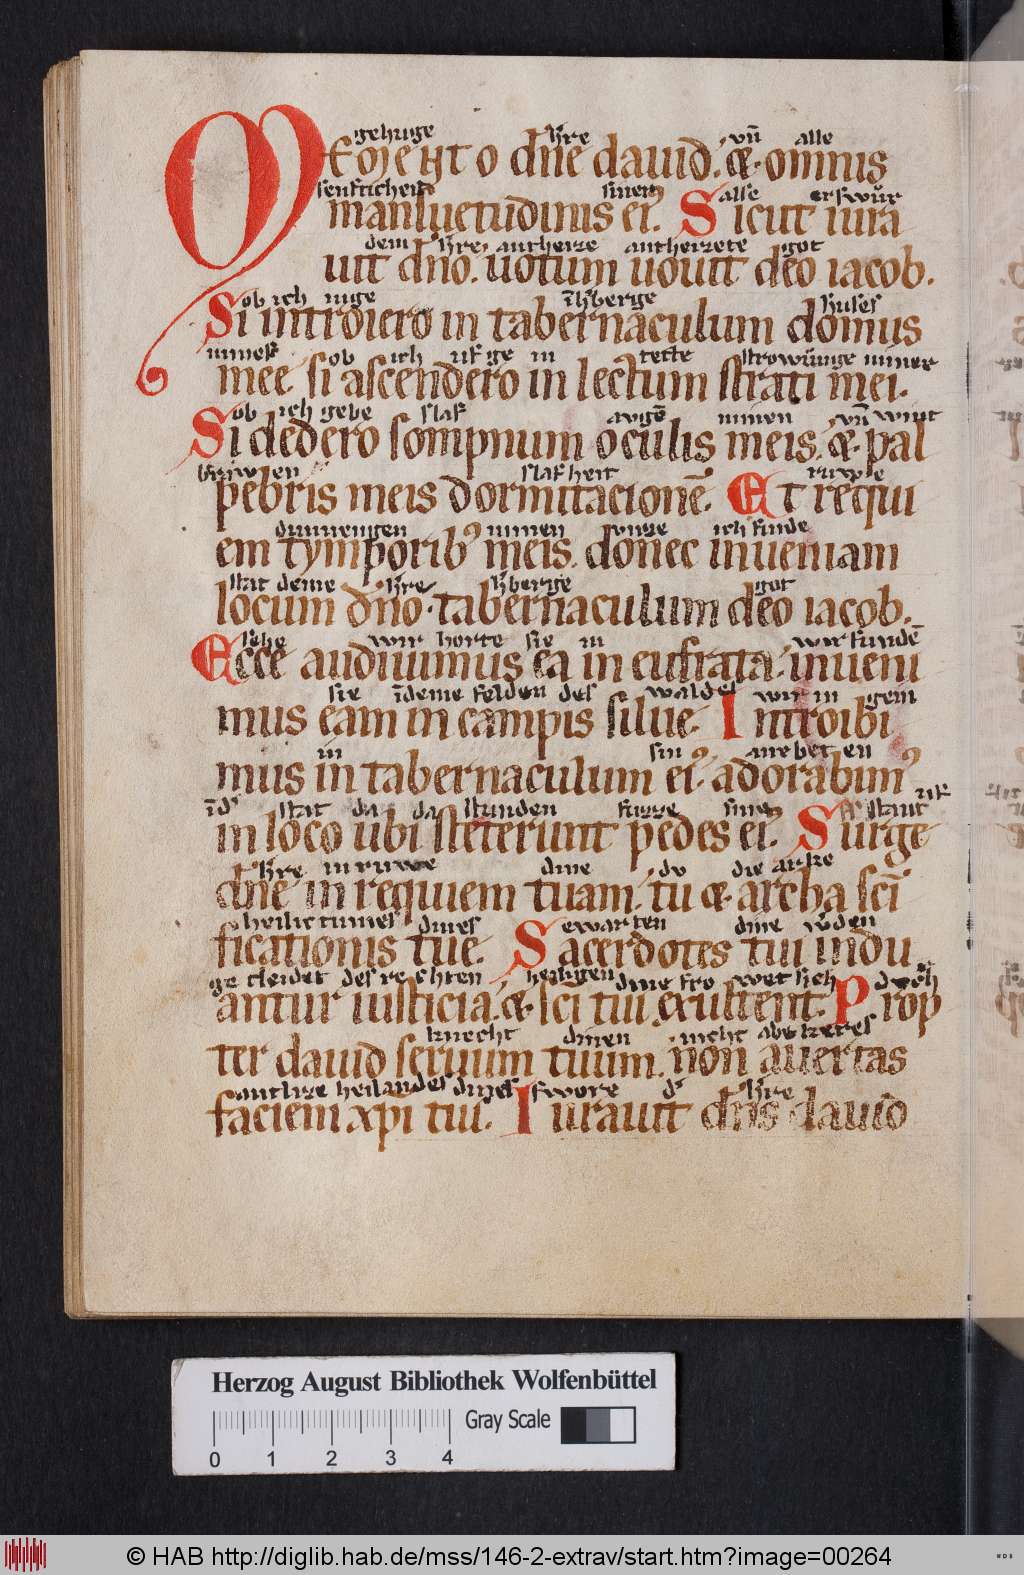 gehuge h̄re vn̄ alle
MEMENTO dn̄e dauid. & omnis
senfticheit sines alse er swůr
mansuetudinis ei. Sicut iura
dem h̄re, antheize antheizete got
uit dn̄o. uotum uouit deo iacob.
ob ich inge h̄berge huses
Si introiero in tabernaculum domus
mines ob ich uf ge in bette strowůnge miner
mee si ascendero in lectum strati mei.
ob ich gebe slaf augē minen vn̄ wint
Si dedero sompnum oculis meis. & pal
brawen slafheit ruwe
pebris meis dormitacionē. Et requi
dunnengen minen vnze ich finde
em tymporib; meis. donec inueniam
stat deme h̄re h̄berge got
locum dn̄o. tabernaculum deo iacob.
sehe wir horte sie in wir fundē
Ecce audiuimus ea in eufrata. inueni
sie īdeme felden des waldes wir in gein
mus eam in campis silue. Introibi
in sin anebeten
mus in tabernaculum ei. adorabim;
īd stat da da stunden fuzze sines uf
stant
in loco ubi steterunt pedes ei. Surge
h̄re in ruwe dine dv die arke
dn̄e in requiem tuam. tu & archa sc̄i
heilictumes dines ewarten dine vn̄den
ficationis tue. Sacerdotes tui indu
ge cleidet des rechten heiligen dine fro wet sich dvrh
antur iusticia. & sc̄i tui exultent. Prop
knecht dinen nicht abekeres
ter dauid seruum tuum. non auertas
antlize heilandes dines swore d h̄re
faciem xp̄i tui. Iurauit dn̄s dauid
Herzog August Bibliothek Wolfenbüttel
Gray Scale
0 1 2 3 4
© HAB http://diglib.hab.de/mss/146-2-extrav/start.htm?image=00264